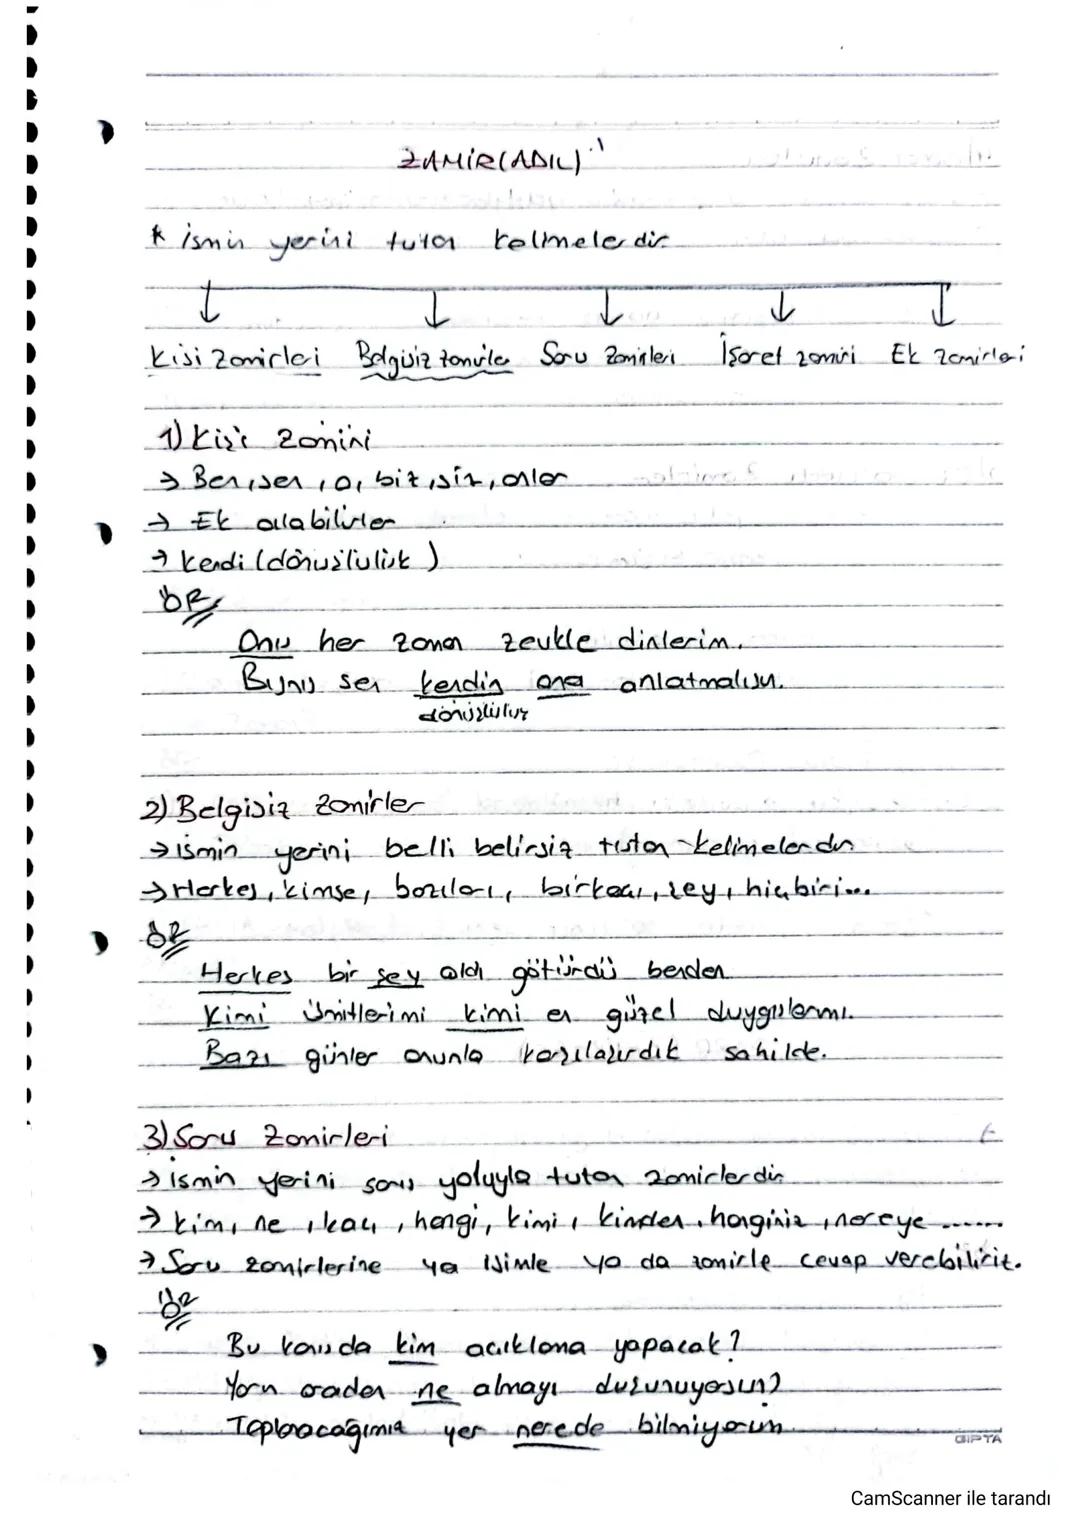 ZAMİR(ADIL)
* ismin yerini tutan kelimelerdir
Kişi Zamirleri Belgisiz zamirler Soru Zamirleri İşaret zamiri Ek zamirleri
1) Kişi Zamiri
→ Ben, sen, o, biz, siz, onlar
→ Ek alabilirler
→ Kendi (dönüşlülük)
ÖR
Onu her zaman zevkle dinlerim.
Bunu sen kendin ona anlatmalısın.
dönüşlülük
2) Belgisiz Zamirler
→ ismin yerini belli belirsiz tutan kelimelerdir
→ Herkes, kimse, bazıları, birkaçı, şey, hiçbiri...
ÖR
Herkes bir şey aldı götürdü benden
Kimi ümitlerimi kimi en güzel duygularımı.
Bazı günler onunla karşılaşırdık sahilde.
3) Soru Zamirleri
→ ismin yerini soru yoluyla tutan zamirlerdir
→ kim, ne, kaçı, hangi, kimi, kimden, hanginiz, nereye ......
→ Soru zamirlerine ya isimle ya da zamirle cevap verebiliriz.
ÖR
Bu konuda kim açıklama yapacak?
Yarın oradan ne almayı düşünüyorsun?
Toplanacağımız yer nerede bilmiyorum.
GIPTA
CamScanner ile tarandı